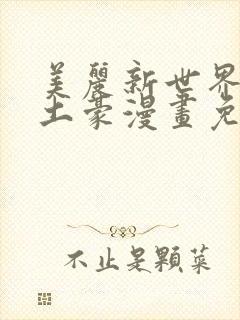 美麗新世界
土豪漫畫免
不止是顆菜